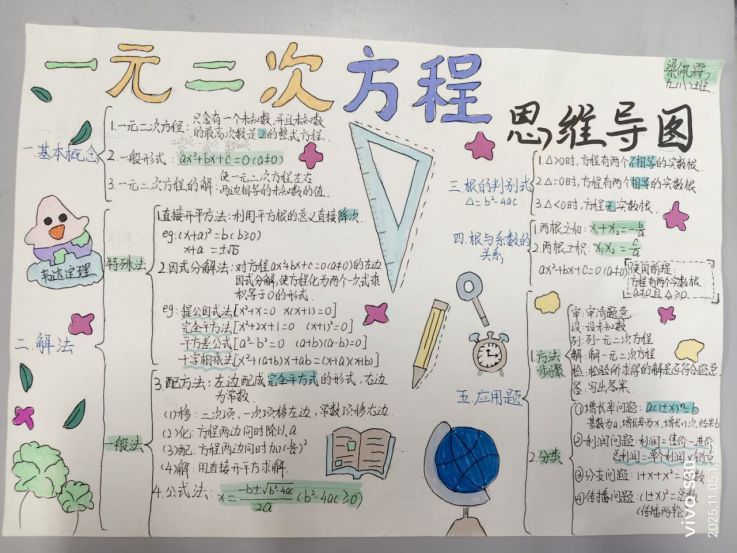 一元二次方程
思维导图
九(八)班
一.基本概念
1.一元二次方程：只含有一个未知数，并且未知数
的最高次数是2的整式方程.
2.一般形式：ax²+bx+c=0(a≠0)
3.一元二次方程的解：使一元二次方程左右
两边相等的未知数的值.
韦达定理
二.解法
特殊法
1.直接开平方法：利用平方根的意义直接降次.
eg:(x+a)²=b(b≥0)
x+a=±√b
2.因式分解法：对方程ax²+bx+c=0(a≠0)的左边
因式分解,使方程化为两个一次式乘
积等于0的形式.
eg:提公因式法[x²+x=0 x(x+1)=0]
完全平方法[x²+2x+1=0 (x+1)²=0]
平方差公式[a²-b²=0 (a+b)(a-b)=0]
十字相乘法[x²+(a+b)x+ab=(x+a)(x+b)]
一般法
3.配方法：左边配成完全平方式的形式,右边
为常数.
(1)移：二次项,一次项移左边,常数项移右边
(2)化：方程两边同时除以a
(3)配：方程两边同时加
(4)解：用直接开平方求解.
4.公式法：x=(-b±√b²-4ac)/2a (b²-4ac≥0)
三.根的判别式
△=b²-4ac
1.△>0时,方程有两个不相等的实数根.
2.△=0时,方程有两个相等的实数根.
3.△<0时,方程无实数根.
四.根与系数的
关系
1.两根之和：x₁+x₂=-b/a
2.两根之积：x₁x₂=c/a
ax²+bx+c=0(a≠0)
使用前提：
方程有两个实数根
a≠0且△≥0
五.应用题
1.方法
步骤
审：审清题意
设：设未知数
列：列一元二次方程
解：解一元二次方程
检：检验所求得的解是否符合题意
答：写出答案.
2.分类
①增长率问题：a(1±x)ⁿ=b
基数为a,增长率为x,增长n次,结果b
②利润问题：利润=售价-进价
总利润=单个利润×销量
③分支问题：1+x+x²=
④传播问题：(1+x)²=总数
(传播两轮
vivo S30
2025.11.05